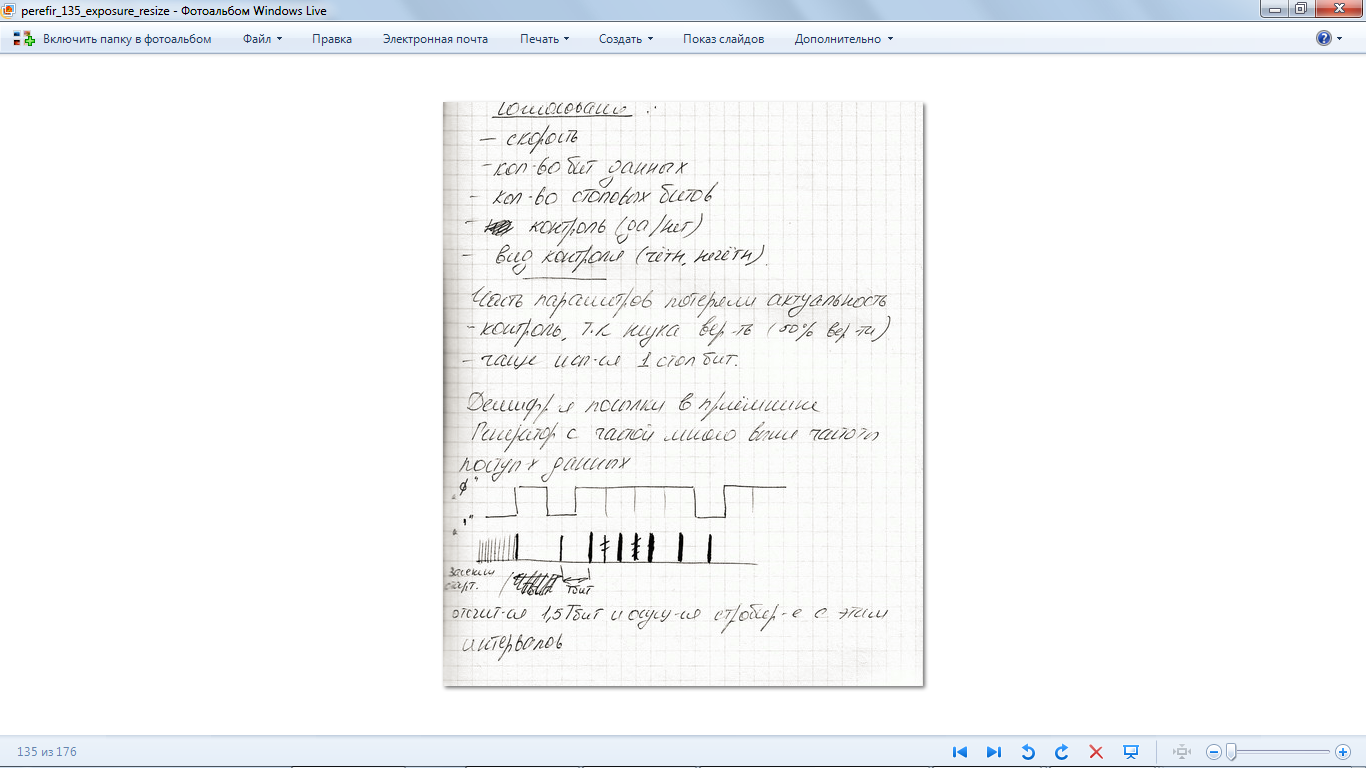 perefir_135_exposure_resize - Фотоальбом Windows Live
Включить папку в фотоальбом Файл Правка Электронная почта Печать Создать Показ слайдов Дополнительно
— скорость
- кол-во бит данных
- кол-во стоповых битов
- контроль (да/нет)
- вид контроля (чётн, нечётн).
Часть параметров потеряли актуальность
- контроль, т.к вер-ть (50% вер-ти)
- чаще исп-ся 1 стоп бит.
Дешифр-я посылки в приёмнике
Генератор с частотой много выше частоты
поступ-х данных
"ф"
"1"
Засекли
старт.
Tбит
отсчит-ся 1,5Tбит и осущ-ся стробир-е с этим
интервалов
135 из 176